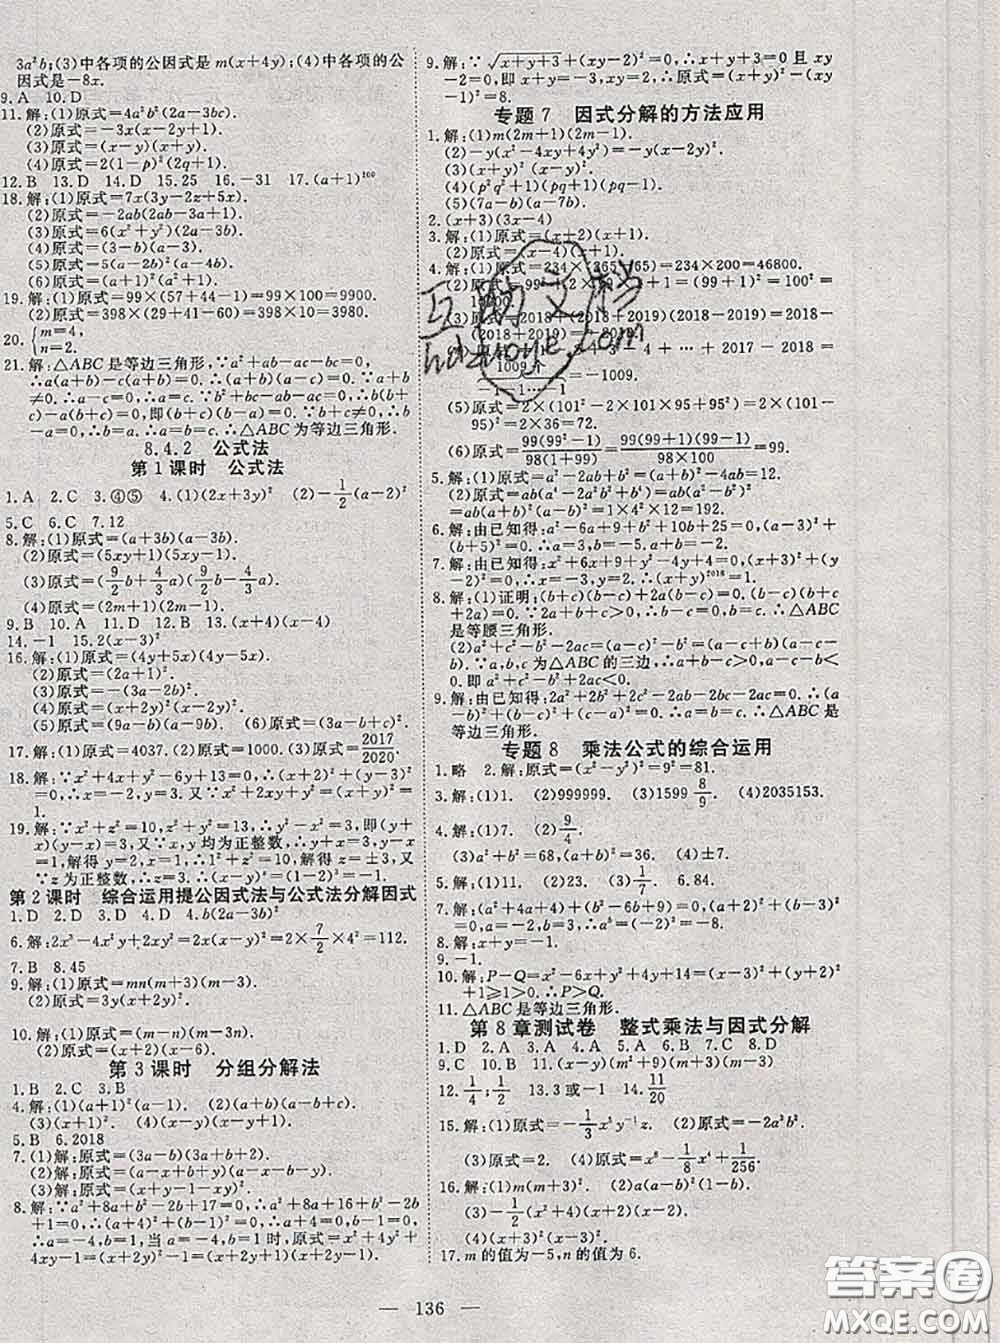 3a²b;(3)中各项的公因式是m(x+4y);(4)中各项的公
因式是-8x.
9.A 10.D
11.解:(1)原式=4a²b²(2a-3bc).
(2)原式=-3x(x-2y+1).
(3)原式=(x-y)(x+y).
(4)原式=2(1-p)²(2q+1).
12.B 13.D 14.D 15.25 16.-31 17.(a+1)¹⁰⁰
18.解:(1)原式=7x(3y-2z+5x).
(2)原式=-2ab(2ab-3a+1).
(3)原式=6(x²+y²)(2x-3y).
(4)原式=(b-3)(a-3).
(5)原式=(a-2b)(4a-5b).
(6)原式=(a+1)²(a²+1).
19.解:(1)原式=99×(57+44-1)=99×100=9900.
(2)原式=398×(29+41-60)=398×10=3980.
20.{m=4,
n=2.
21.解:△ABC是等边三角形,∵a²+ab-ac-bc=0,
∴a(a+b)-c(a+b)=0,∴(a-c)(a+b)=0.∵a+b
≠0,∴a-c=0,∴a=c.∵b²+bc-ab-ac=0,∴b(b+
c)-a(b+c)=0,即(b+c)(b-a)=0.∵b+c≠0,∴b
-a=0,∴b=a,∴a=b=c.∴△ABC为等边三角形.
8.4.2 公式法
第1课时 公式法
1.A 2.C 3.④⑤ 4.(1)(2x+3y)² (2)-1/2(a-2)²
5.C 6.C 7.12
8.解:(1)原式=(a+3b)(a-3b).
(2)原式=(5xy+1)(5xy-1).
(3)原式=(9/2b+4/3a)(9/2b-4/3a).
(4)原式=(2m+1)(2m-1).
9.B 10.A 11.D 12.B 13.(x+4)(x-4)
14.-1 15.2(x-3)²
16.解:(1)原式=(4y+5x)(4y-5x).
(2)原式=(2a+1)².
(3)原式=-(3a-2b)².
(4)原式=(x-y-3)².
(5)原式=(9a-b)(a-9b). (6)原式=(3a-b+c)².
17.解:(1)原式=4037.(2)原式=1000.(3)原式=2017/2020.
18.解:∵x²+4x+y²-6y+13=0,∴(x+2)²+(y-3)²
=0,∴x=-2,y=3.
1.
19.解:∵x²+z²=10,z²+y²=13,∴y²-x²=3,即(y+
x)(y-x)=3,又∵x,y均为正整数,∴y+x=3,y-x
=1,解得y=2,x=1,∴1²+z²=10,解得z=±3,又∵
z为正整数,∴z=3,∴(x-y)ᶻ=(1-2)³=-1.
第2课时 综合运用提公因式法与公式法分解因式
1.D 2.D 3.D 4.D 4.b(2a-3b)²
6.解:2x³-4x²y+2xy²=2x(x-y)²=2×7/2×4²=112.
7.B 8.45
9.解:(1)原式=mn(m+3)(m-3).
(2)原式=3y(x+2y)².
10.解:(1)原式=(m-n)(m-3n).
(2)原式=(x+2)(x-6).
第3课时 分组分解法
1.B 2.C 3.B
4.解:(1)(a+1)²(a-1). (2)(a+b)(a-b+c).
(3)(x+y)(x-3). (4)(x-y)(x-y+1).
5.B 6.2018
7.(1)解:原式=(3a-b)(3a+b-2).
(2)解:原式=(a-x+y)(a+x-y).
(3)解:原式=(x+y-1)(x-y-1).
8.解:∵a²+8a+b²-2b+17=0,∴a²+8a+16+b²-2b
+1=0,∴(a+4)²+(b-1)²=0,∴a+4=0,b-1=0,
∴a=-4,b=1,当a=-4,b=1时,原式=x²+4y²+
4xy-1=(x+2y)²-1=(x+2y+1)(x+2y-1).
9.解:∵√(x+y+3)+(xy-2)²=0,∴x+y+3=0且xy
-2=0,即x+y=-3,xy=2,∴原式=(x+y)²-(xy
-1)²=8.
专题7 因式分解的方法应用
1.解:(1)m(2m+1)(2m-1).
(2)-y(x²-4xy+4y²)=-y(x-2y)².
(3)(x+y)(x+y-4).
(4)(p²q²+1)(pq+1)(pq-1).
(5)(7a-b)(7b-a).
2.(x+3)(3x-4)
3.解:(1)原式=(x+2)(x+1).
(2)原式=(x-4)(x+1).
4.解:(1)原式=234×(265-65)=234×200=46800.
(5)原式=2×(101²-2×101×95+95²)=2×(101-
95)²=2×36=72.
(6)原式=99(99²-1)/98(1+99)=99(99+1)(99-1)/98×100=99.
5.解:(1)原式=a²-2ab+b²=(a+b)²-4ab=12.
6.解:由已知得:a²-6a+9+b²+10b+25=0,(a-3)²+
(b+5)²=0.∴a=3,b=-5.
7.解:由已知得:x²+6x+9+y²-4y+4=0,(x+3)²+(y
-2)²=0,∴x=-3,y=2,∴(x+y)²⁰¹⁸=1.
是等腰三角形.
(2)a²+c²-2ac-b²=(a-c)²-b²=(a-c+b)(a-c-
b).∵a,b,c为△ABC的三边,∴a+b-c>0,a-c-b
<0.即a²-b²+c²-2ac<0.
9.解:由已知得:2a²+2b²+2c²-2ab-2bc-2ac=0.(a
-b)²+(b-c)²+(a-c)²=0.∴a=b=c,∴△ABC
是等边三角形.
专题8 乘法公式的综合运用
1.略 2.解:原式=(x²-y²)²=9²=81.
3.解:(1)1. (2)999999. (3)1599 8/9. (4)2035153.
4.解:(1)7. (2)9/4.
(3)a²+b²=68,(a+b)²=36. (4)±7.
5.解:(1)23. (2)2. (3)1/7. 6.84.
7.解:(a²+4a+4)+(b²-6b+9)=0,(a+2)²+(b-3)²
=0,∴a=-2,b=3.
8.解:x+y=-1.
9.-1.
10.解:P-Q=x²-6x+y²+4y+14=(x-3)²+(y+2)²
+1≥1>0.∴P>Q.
11.△ABC是等边三角形.
第8章测试卷 整式乘法与因式分解
1.D 2.A 3.A 4.A 5.A 6.B 7.C 8.D
9.C 10.C 11.(x-y)(m²+9)(m+3)(m-3)
12.1/4;1/2 13.3或-1 14.11/20
15.解:(1)原式=-1/3x⁵y⁻¹z. (2)原式=-2a³b².
(3)原式=2. (4)原式=x⁸-1/8x⁴+1/256.
16.解:(1)m(m+3)². (2)a(a-2b)(a-b).
(3)-1/2(x²+4)(x+2)(x-2).
(4)(x+3)²(x-3)².
17.m的值为-5,n的值为6.
互助文档
hdzuoye.com
136
答案圈
MXQE.COM